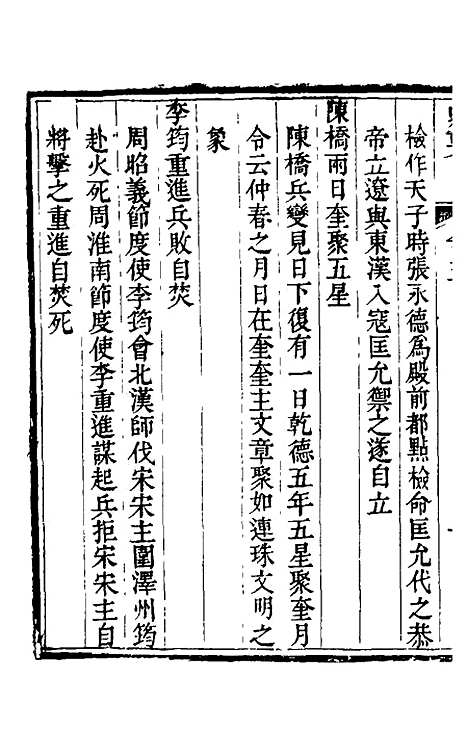 檢作天子時張永德爲殿前都點檢命匡允代之恭
帝立遼與東漢入寇匡允禦之遂自立
陳橋兩日奎聚五星
陳橋兵變見日下復有一日乾德五年五星聚奎月
令云仲春之月日在奎奎主文章聚如連珠文明之
象
李筠重進兵敗自焚
周昭義節度使李筠會北漢師伐宋宋主圍澤州筠
赴火死周淮南節度使李重進謀起兵拒宋宋主自
將擊之重進自焚死